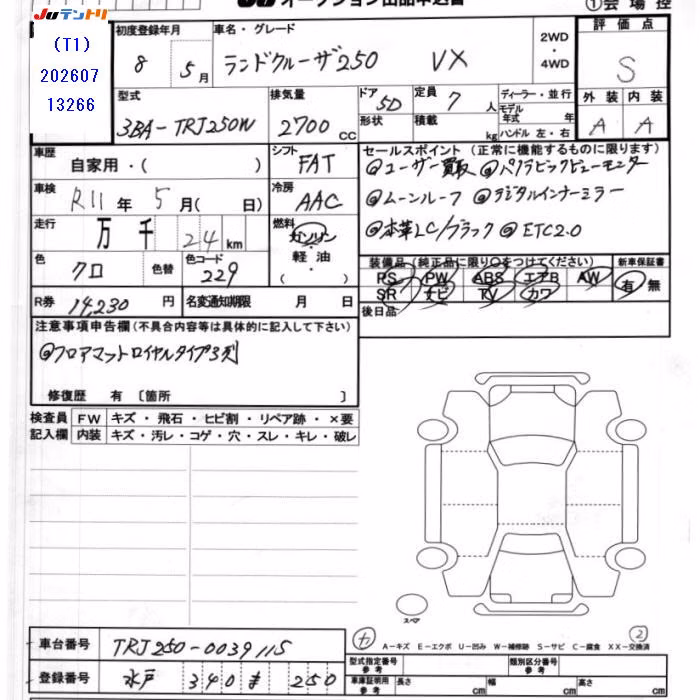 JUテントリ
オークション出品申込書
①会場控
(T1)
202607
13266
初度登録年月
8 5月
車名・グレード
ランドクルーザ250 VX
2WD
・
4WD
評価点
S
型式
3BA-TRJ250W
排気量
2700 CC
ドア 5D
形状
定員 7 人
積載 kg
ディーラー・並行
モデル
年式 年
ハンドル 左・右
外装 内装
A A
車歴
自家用・( )
シフト
FAT
セールスポイント (正常に機能するものに限ります)
@ユーザー買取 @パノラミックビューモニター
車検
R11年 5月( 日)
冷房
AAC
@ムーンルーフ @デジタルインナーミラー
走行
万 千 24 km
燃料
ガソリン
・
軽油
( )
@本革LC/ブラック @ETC2.0
色
クロ
色替
色コード
229
装備品 (純正品に限り○をつけてください)
新車保証書
PS PW ABS エアB AW
有 無
SR ナビ TV カワ
R券 14,230 円
名変通知期限 月 日
後日品
注意事項申告欄 (不具合内容等は具体的に記入して下さい)
@フロアマットロイヤルタイプ3列
修復歴 有 〔箇所 〕
検査員
記入欄
FW キズ・飛石・ヒビ割・リペア跡・×要
内装 キズ・汚レ・コゲ・穴・スレ・キレ・破レ
スペア
車台番号 TRJ250-0039115
A-キズ E-エクボ U-凹み W-補修跡 S-サビ C-腐食 XX-交換済
②
登録番号 水戸 340 ま 250
型式指定番号
参考
類別区分番号
参考
車庫証明用
参考
長さ cm
幅 cm
高さ cm